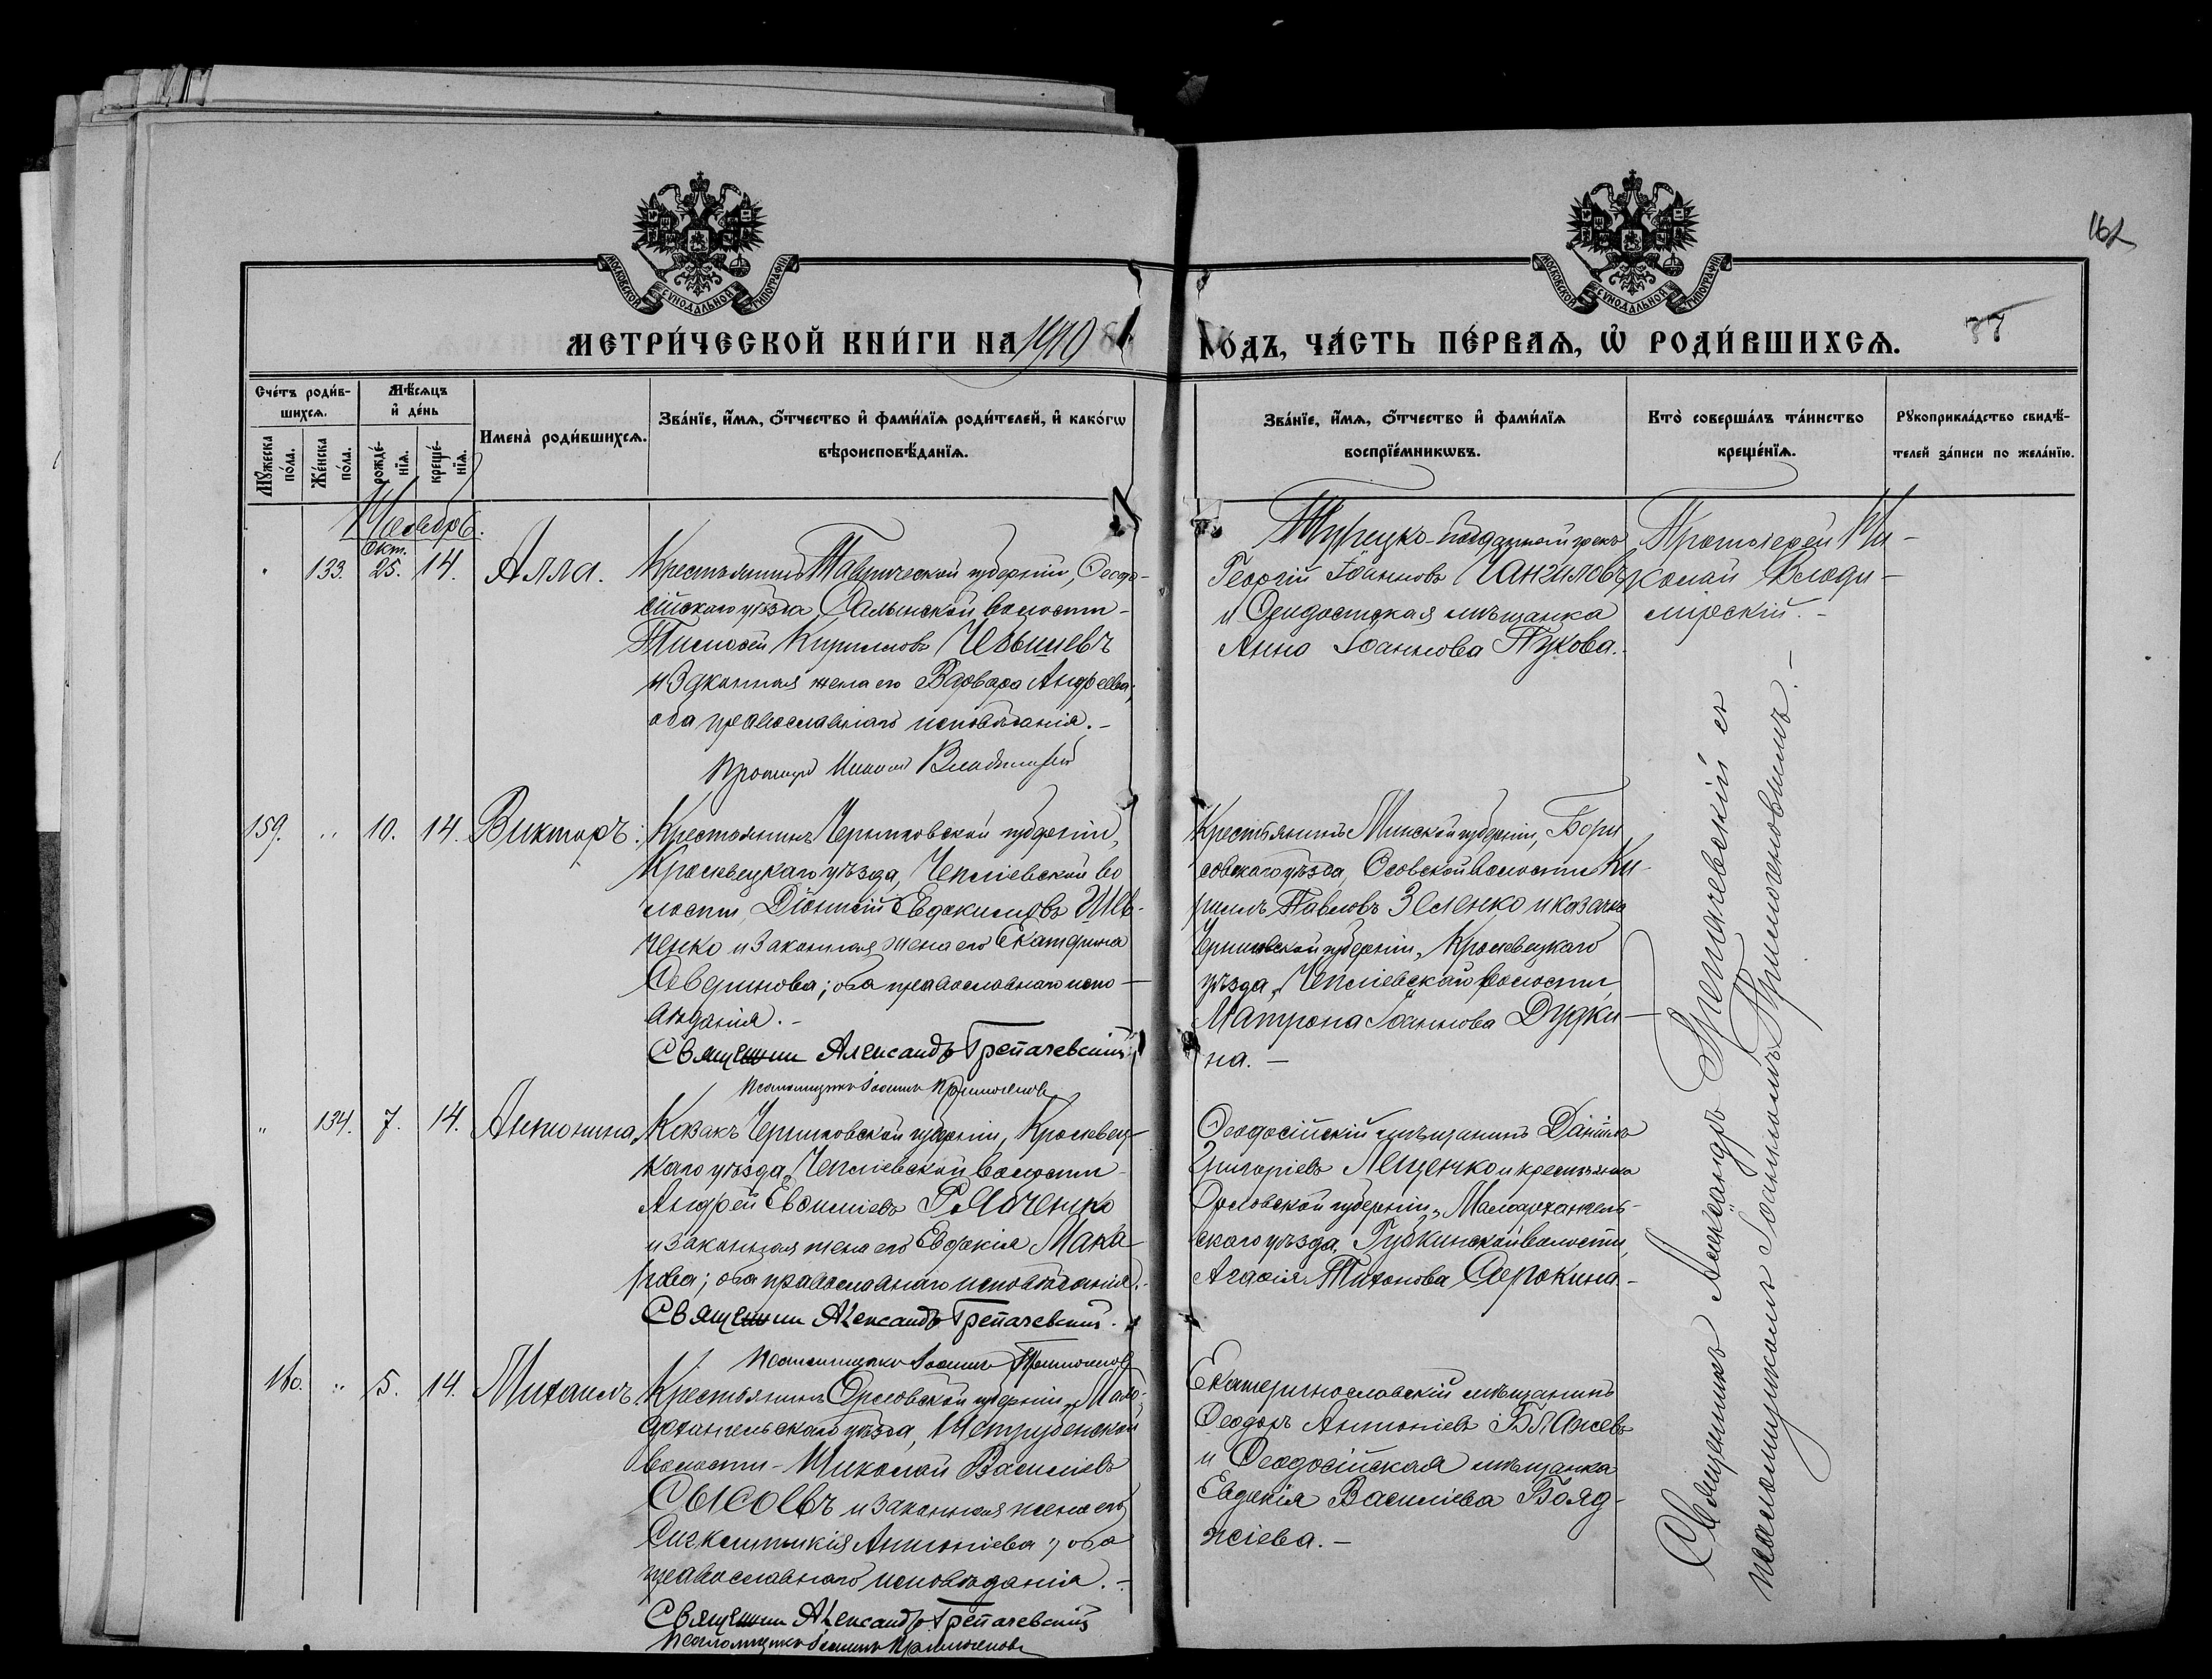 162
МОСКОВСКОЙ СУНОДАЛЬНОЙ ТИПОГРАФІИ
МОСКОВСКОЙ СУНОДАЛЬНОЙ ТИПОГРАФІИ
МЕТРИ́ЧЕСКОЙ КНИ́ГИ НА 1910
ГО́ДЪ, ЧА́СТЬ ПЕ́РВАѦ, Ѡ҆ РОДИ́ВШИХСѦ.
77
Сче́тъ роди́в-
шихсѧ.
Мѣ́сѧцъ
и҆ де́нь
Мꙋ́жеска
по́ла.
Же́нска
по́ла.
рожде́-
нїѧ.
креще́-
нїѧ.
Имена̀ роди́вшихсѧ.
Зва́нїе, и҆́мѧ, ѻ҆́тчество и҆ фами́лїѧ роди́телей, и҆ како́гѡ
вѣроисповѣ́данїѧ.
Зва́нїе, и҆́мѧ, ѻ҆́тчество и҆ фами́лїѧ
воспрїе́мникѡвъ.
Кто̀ соверша́лъ та́инство
креще́нїѧ.
Рꙋкоприкла́дство свидѣ́-
телей за́писи по жела́нїю.
Ноябрь.
Окт.
" 133. 25. 14. Алла.
Крестьянинъ Таврической губерніи, Ѳеодо-
сійскаго уѣзда Салынской волости-
Тимоѳей Кирилловъ Чевычевъ
и законная жена его Варвара Андреева;
оба православнаго исповѣданія.-
Протоіерей Николай Владимірскій
Турецко-подданный грекъ
Георгій Іоанновъ
и Ѳеодосійская мѣщанка
Анна Іоаннова Пукова.
Протоіерей Ни-
колай Влади-
мірскій.-
159. " 10. 14. Викторъ.
Крестьянинъ Черниговской губерніи,
Кролевецкаго уѣзда, Чепліевской во
лости, Діонисій Евдокимовъ Шев-
ченко и законная жена его Екатерина
Северинова; оба православнаго испо-
вѣданія.-
Священник Александръ Грепачевскій
Псаломщикъ Іоаннъ Примогеновъ
Крестьянинъ Минской губерніи, Бори
совскаго уѣзда, Осовской волости Ки-
риллъ Павловъ Зеленко и казачка
Черниговской губерніи, Кролевецкаго
уѣзда, Чепліевской волости,
Матрона Іоаннова Дудки-
на.-
" 134. 7. 14. Антонина.
Казакъ Черниговской губерніи, Кролевец-
каго уѣзда, Чепліевской волости-
Андрей Евѳиміевъ Рябченко
и законная жена его Евдокія Мака-
рова; оба православнаго исповѣданія.
Священник Александръ Грепачевскій.
Псаломщикъ Іоаннъ Примогеновъ
Ѳеодосійскій мѣщанинъ Даніилъ
Григоріевъ Лещенко и крестьянка
Орловской губерніи, Малоархангель-
скаго уѣзда, Губкинской волости,
Агаѳія Тихонова Сорокина-
160. " 5. 14. Михаилъ.
Крестьянинъ Орловской губерніи, Мало-
архангельскаго уѣзда,
волости- Николай Василіевъ
Сысоевъ и законная жена его
Синклитикія Антоніева; оба
православнаго исповѣданія.-
Священник Александръ Грепачевскій
Псаломщикъ Іоаннъ Примогеновъ
Екатеринославскій мѣщанинъ
Ѳеодоръ Антоніевъ Блажевъ
и Ѳеодосійская мѣщанка
Евдокія Василіева Бояд-
жіева.-
Священникъ Александръ Грепачевскій съ
псаломщикомъ Іоанномъ Примогеновымъ.-